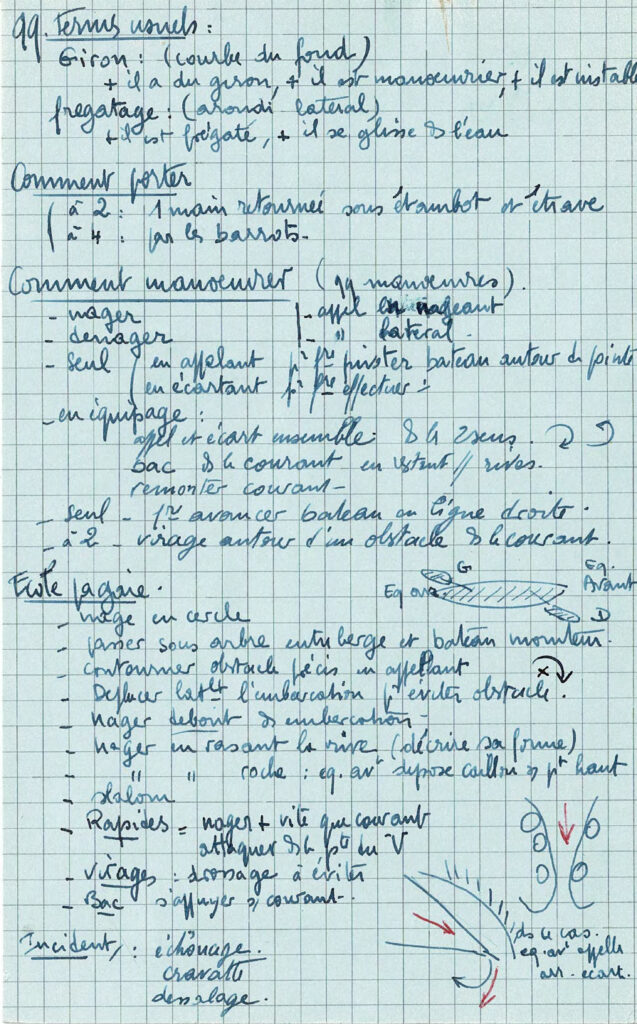 qq. termes usuels :
Giron : (courbe du fond)
+ il a du giron, + il est manoeuvrier, + il est instable
fregatage : (arondi lateral)
+ il est frégaté, + il se glisse ds l'eau
Comment porter
à 2 : 1 main retournée sous l'étambot et l'étrave
à 4 : par les barrots.
Comment manoeuvrer (qq manoeuvres).
- nager - appel en nageant
- denager - " lateral.
- seul en appelant pr fre pivoter bateau autour de pointe
en écartant pr fre effectuer =
- en équipage :
appel et écart ensemble : ds le 2 sens.
bac ds le courant en restant // rives.
remonter courant -
- seul - fre avancer bateau en ligne droite.
- à 2 - virage autour d'un obstacle ds le courant.
Ecole pagaie.
G Eq. Avant
Eq arr D
- nage en cercle
- passer sous arbre entre berge et bateau moniteur.
- contourner obstacle précis en appelant
- Deplacer latlt l'embarcation pr éviter obstacle. x
- nager debout ds embarcation -
- nager en rasant la rive (décrire sa forme)
- " " roche : eq. avt depose caillou s/ pt haut
- slalom
- Rapides = nager + vite que courant
attaquer ds la pte du V
- Virages : drossage à éviter
- Bac s'appuyer s/ courant -
ds ce cas.
eq. avt appelle
arr. écart.
Incidents : échouage.
cravate
dessalage.